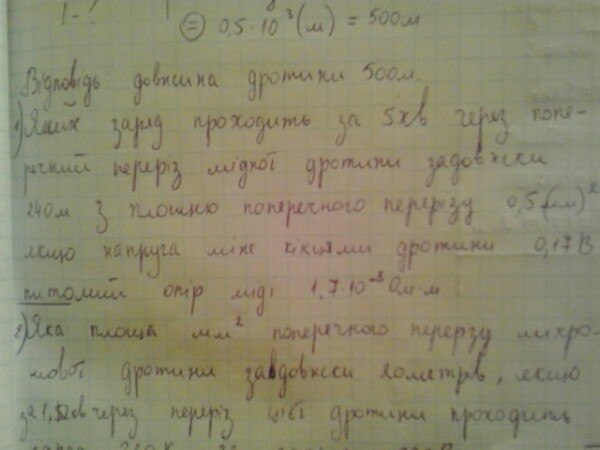 = 0,5·10³(м) = 500м
Відповідь довжина дротини 500м.
1) Яких заряд проходить за 5хв через попе-
речний переріз мідної дротини задовжки
240м з площню поперечного перерізу 0,5(мм)²
якщо напруга між кінцями дротини 0,17В
питомий опір міді 1,7·10⁻⁸ Ом·м
2) Яка площа мм² поперечного перерзу ніхро-
мової дротини завдовжски метрів, якщо
за через переріз цієї дротини проходить